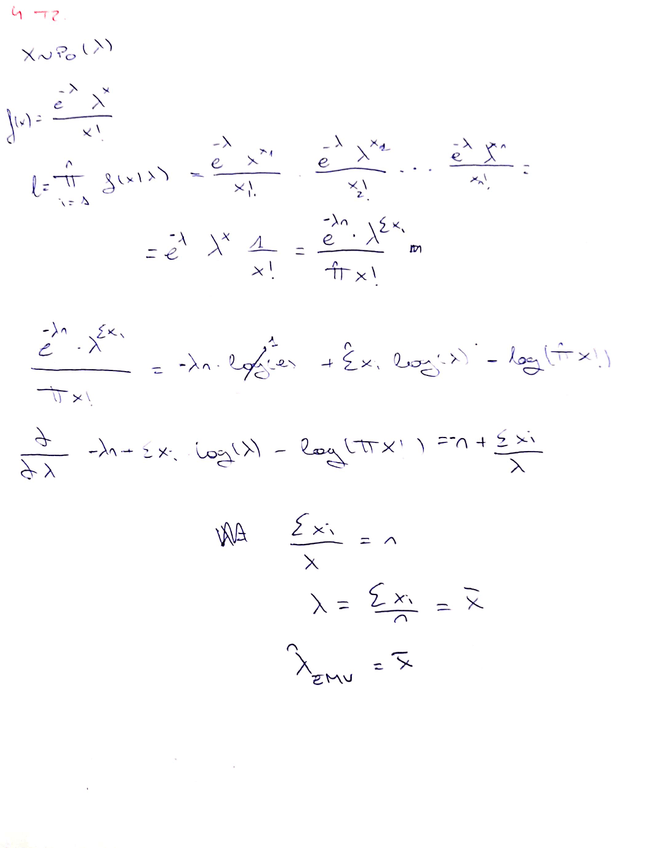 4 T2
X ~ Po(λ)
f(x) = e^{-λ} λ^x / x!
l = ∏_{i=1}^{n} f(x|λ) = e^{-λ} λ^{x_1} / x_1! · e^{-λ} λ^{x_2} / x_2! ... e^{-λ} λ^{x_n} / x_n! =
= e^{-λ} λ^x 1 / x! = e^{-λn} · λ^{Σx_i} / ∏ x!
e^{-λn} · λ^{Σx_i} / ∏ x! = -λn · log(e) 1 + Σx_i log(λ) - log(∏ x!)
∂/∂λ -λn + Σx_i log(λ) - log(∏ x!) = -n + Σx_i / λ
Σx_i / λ = n
λ = Σx_i / n = x̄
λ̂_{EMV} = x̄